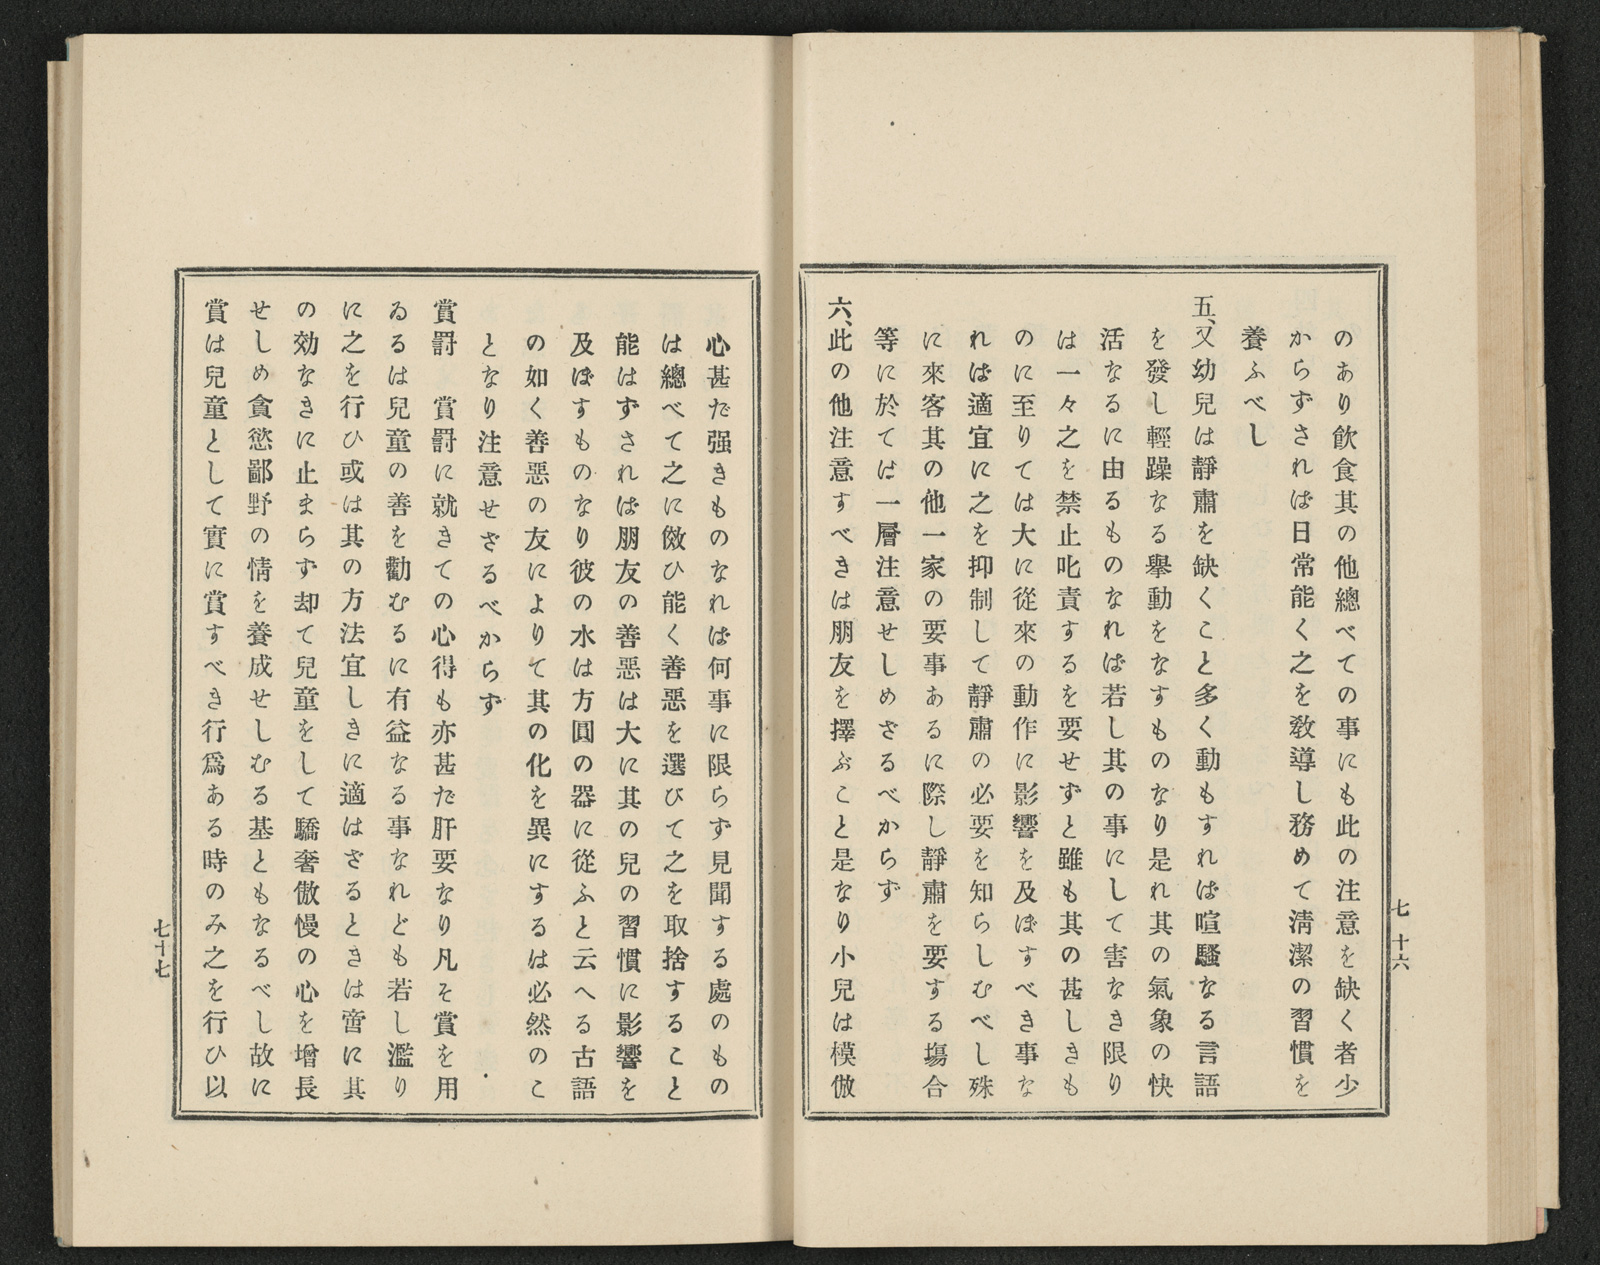 のあり飮食其の他總べての事にも此の注意を缺く者少
からずされば日常能く之を敎導し務めて淸潔の習慣を
養ふべし
五、又幼兒は靜肅を缺くこと多く動もすれば喧騷なる言語
を發し輕躁なる擧動をなすものなり是れ其の氣象の快
活なるに由るものなれば若し其の事にして害なき限り
は一々之を禁止叱責するを要せずと雖も其の甚しきも
のに至りては大に從來の動作に影響を及ぼすべき事な
れば適宜に之を抑制して靜肅の必要を知らしむべし殊
に來客其の他一家の要事あるに際し靜肅を要する塲合
等に於ては一層注意せしめざるべからず
六、此の他注意すべきは朋友を擇ぶこと是なり小兒は模倣
七十六
心甚だ强きものなれば何事に限らず見聞する處のもの
は總べて之に傚ひ能く善惡を選びて之を取捨すること
能はずされば朋友の善惡は大に其の兒の習慣に影響を
及ぼすものなり彼の水は方圓の器に從ふと云へる古語
の如く善惡の友によりて其の化を異にするは必然のこ
となり注意せざるべからず
賞罸　賞罸に就きての心得も亦甚だ肝要なり凡そ賞を用
ゐるは兒童の善を勸むるに有益なる事なれども若し濫り
に之を行ひ或は其の方法宜しきに適はざるときは啻に其
の効なきに止まらず却て兒童をして驕奢傲慢の心を增長
せしめ貪慾鄙野の情を養成せしむる基ともなるべし故に
賞は兒童として實に賞すべき行爲ある時のみ之を行ひ以
七十七